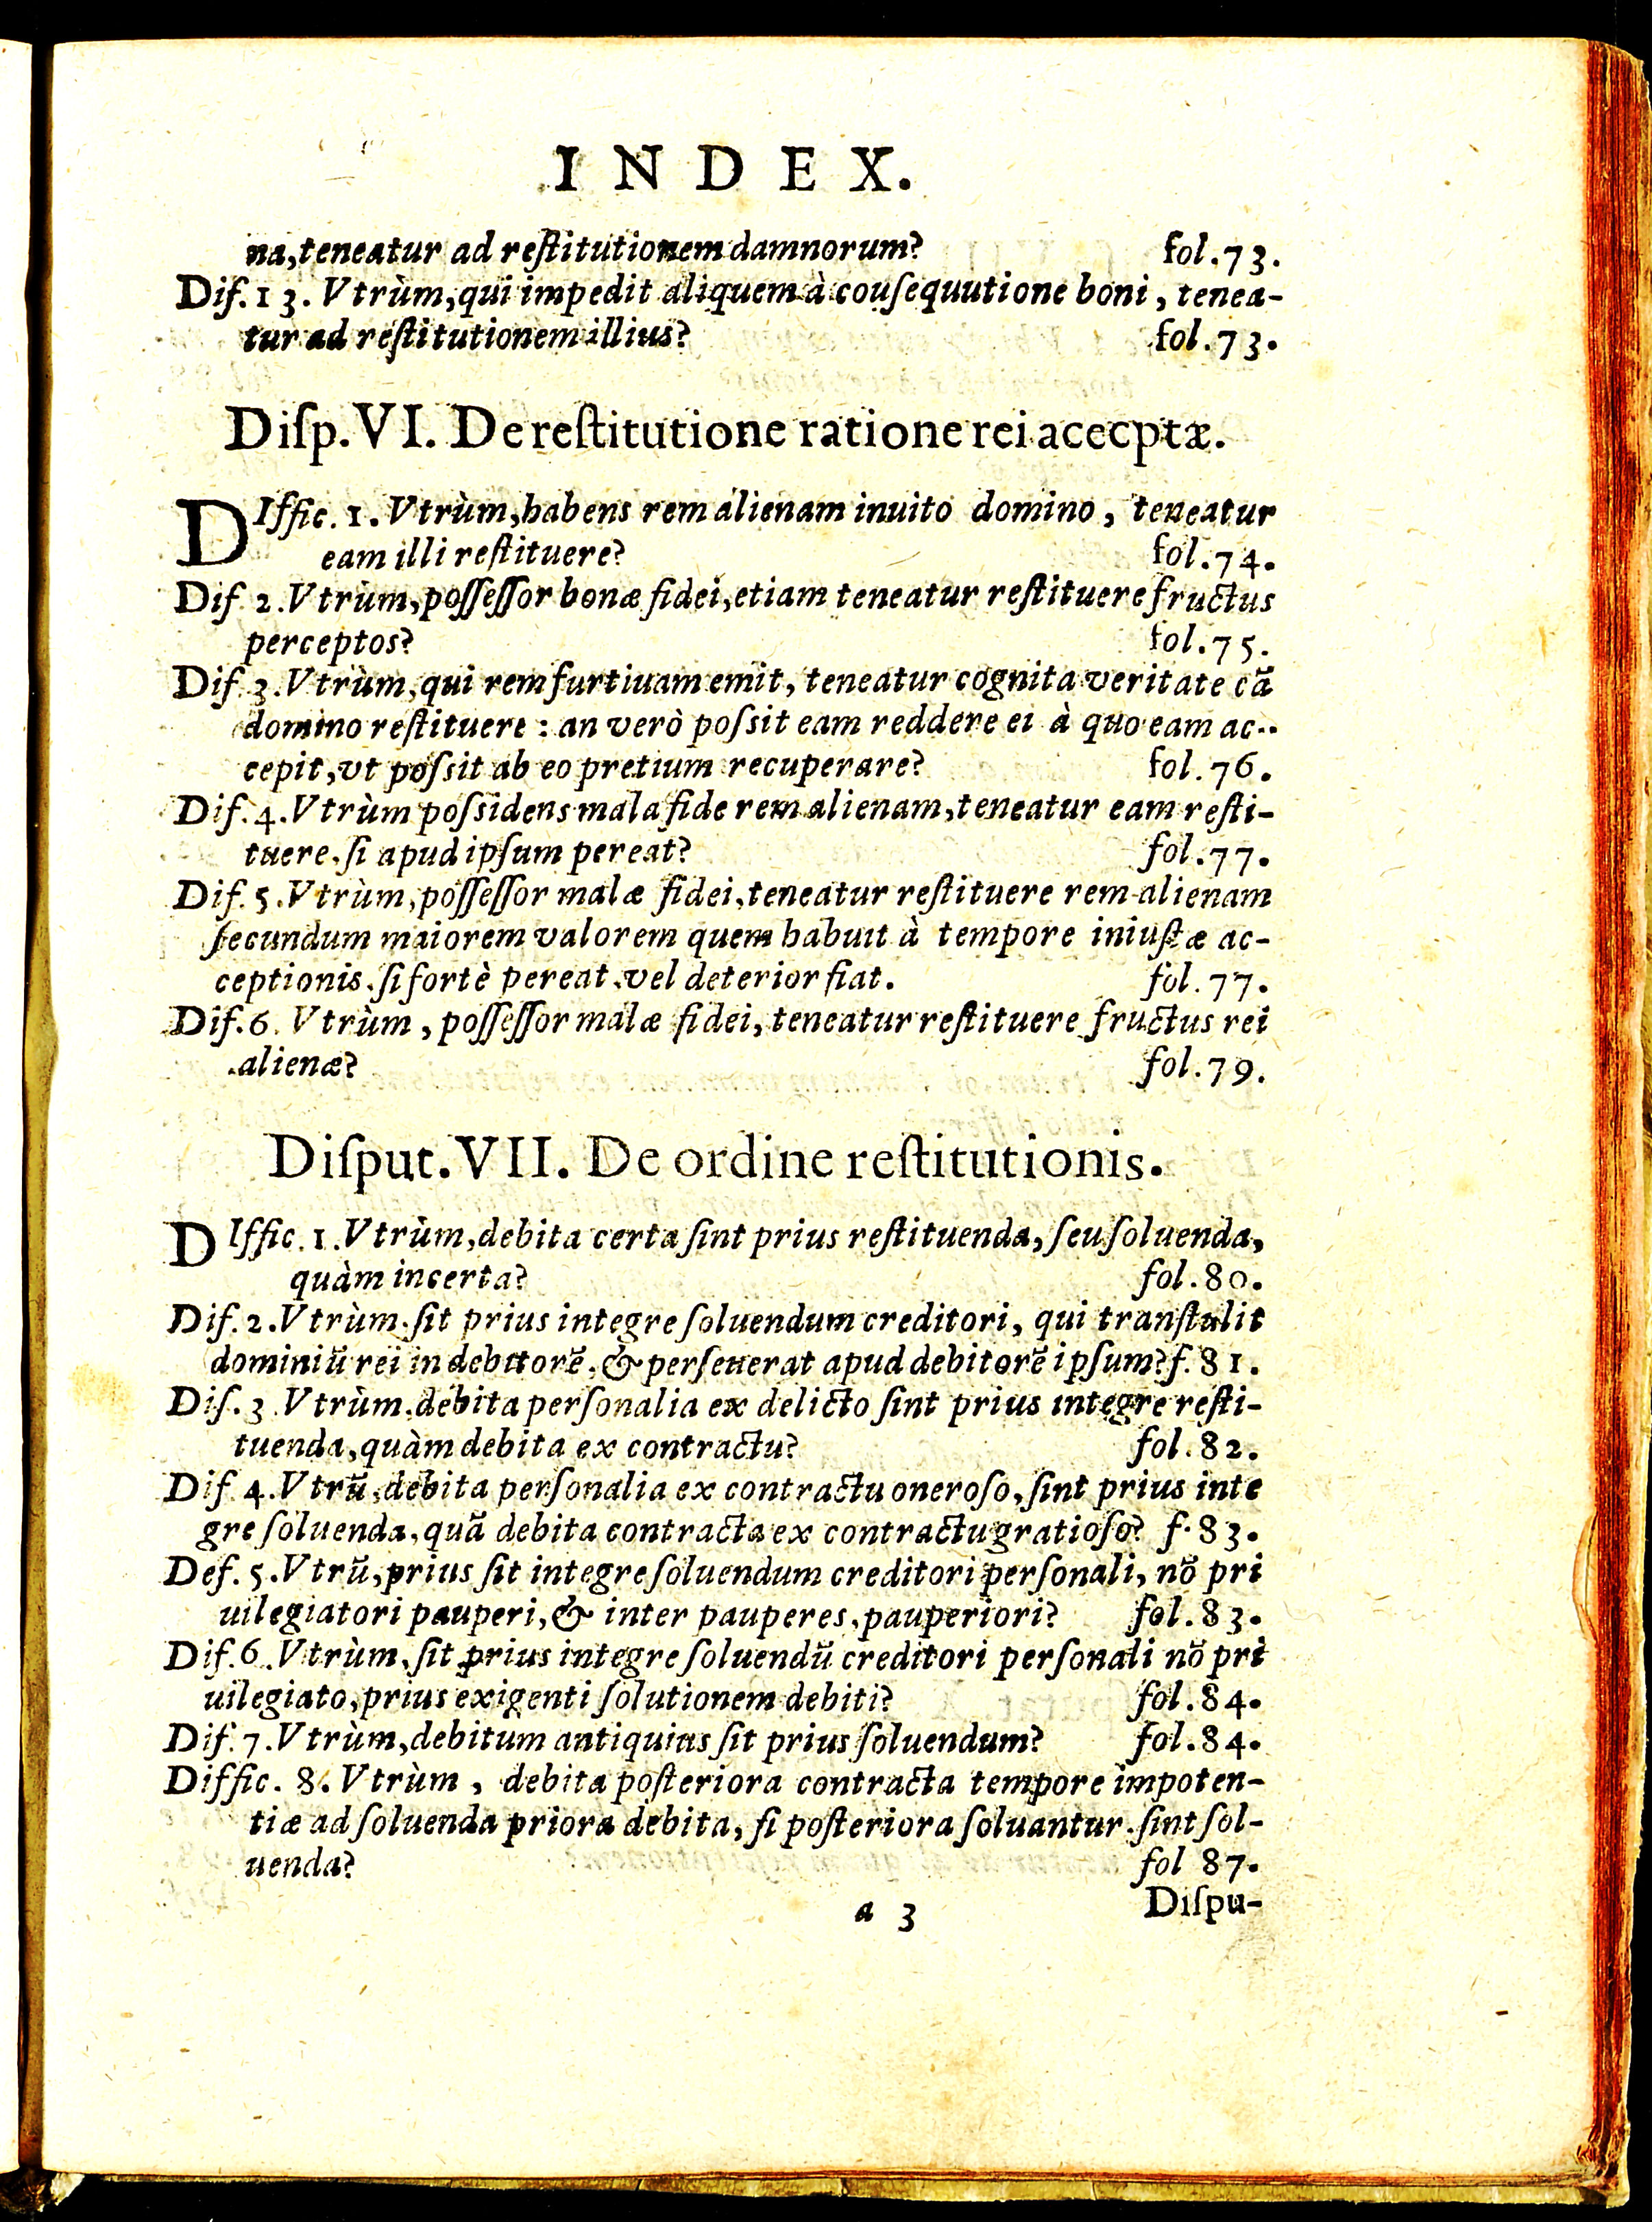 INDEX.
na,teneatur ad reſtitutionem damnorum? fol.73.
Dif.13. Vtrùm,qui impedit aliquem à couſequutione boni, tenea-
tur ad reſtitutionem illius? fol.73.
Diſp.VI. De reſtitutione ratione rei acecptæ.
DIffic. 1. Vtrùm,habens rem alienam inuito domino, teneatur
eam illi reſtituere? fol.74.
Dif. 2.Vtrùm,poſſeſſor bonæ fidei,etiam teneatur reſtituere fructus
perceptos? fol.75.
Dif. 3.Vtrùm,qui rem furtiuam emit, teneatur cognita veritate eã
domino reſtituere : an verò poſsit eam reddere ei à quo eam ac-
cepit,vt poſsit ab eo pretium recuperare? fol.76.
Dif. 4.Vtrùm poſsidens mala fide rem alienam,teneatur eam reſti-
tuere, ſi apud ipſum pereat? fol.77.
Dif. 5.Vtrùm,poſſeſſor malæ fidei,teneatur reſtituere rem alienam
ſecundum maiorem valorem quem habuit à tempore iniuſtæ ac-
ceptionis, ſi fortè pereat,vel deterior fiat. fol.77.
Dif.6. Vtrùm, poſſeſſor malæ fidei, teneatur reſtituere fructus rei
alienæ? fol.79.
Diſput.VII. De ordine reſtitutionis.
DIffic. 1.Vtrùm,debita certa ſint prius reſtituenda, ſeu ſoluenda,
quàm incerta? fol.80.
Dif. 2.Vtrùm,ſit prius integre ſoluendum creditori, qui tranſtulit
dominiũ rei in debitorẽ,& perſeuerat apud debitorẽ ipſum? f.81.
Dif. 3.Vtrùm,debita perſonalia ex delicto ſint prius integre reſti-
tuenda,quàm debita ex contractu? fol.82.
Dif. 4.Vtrũ,debita perſonalia ex contractu oneroſo,ſint prius inte
gre ſoluenda,quã debita contracta ex contractu gratioſo? f.83.
Def. 5.Vtrũ,prius ſit integre ſoluendum creditori perſonali, nõ pri
uilegiatori pauperi,& inter pauperes,pauperiori? fol.83.
Dif.6.Vtrùm,ſit prius integre ſoluendũ creditori perſonali nõ pri
uilegiato,prius exigenti ſolutionem debiti? fol.84.
Dif.7.Vtrùm,debitum antiquius ſit prius ſoluendum? fol.84.
Diffic. 8. Vtrùm, debita poſteriora contracta tempore impoten-
tiæ ad ſoluenda priora debita, ſi poſteriora ſoluantur,ſint ſol-
uenda? fol 87.
a 3 Diſpu-